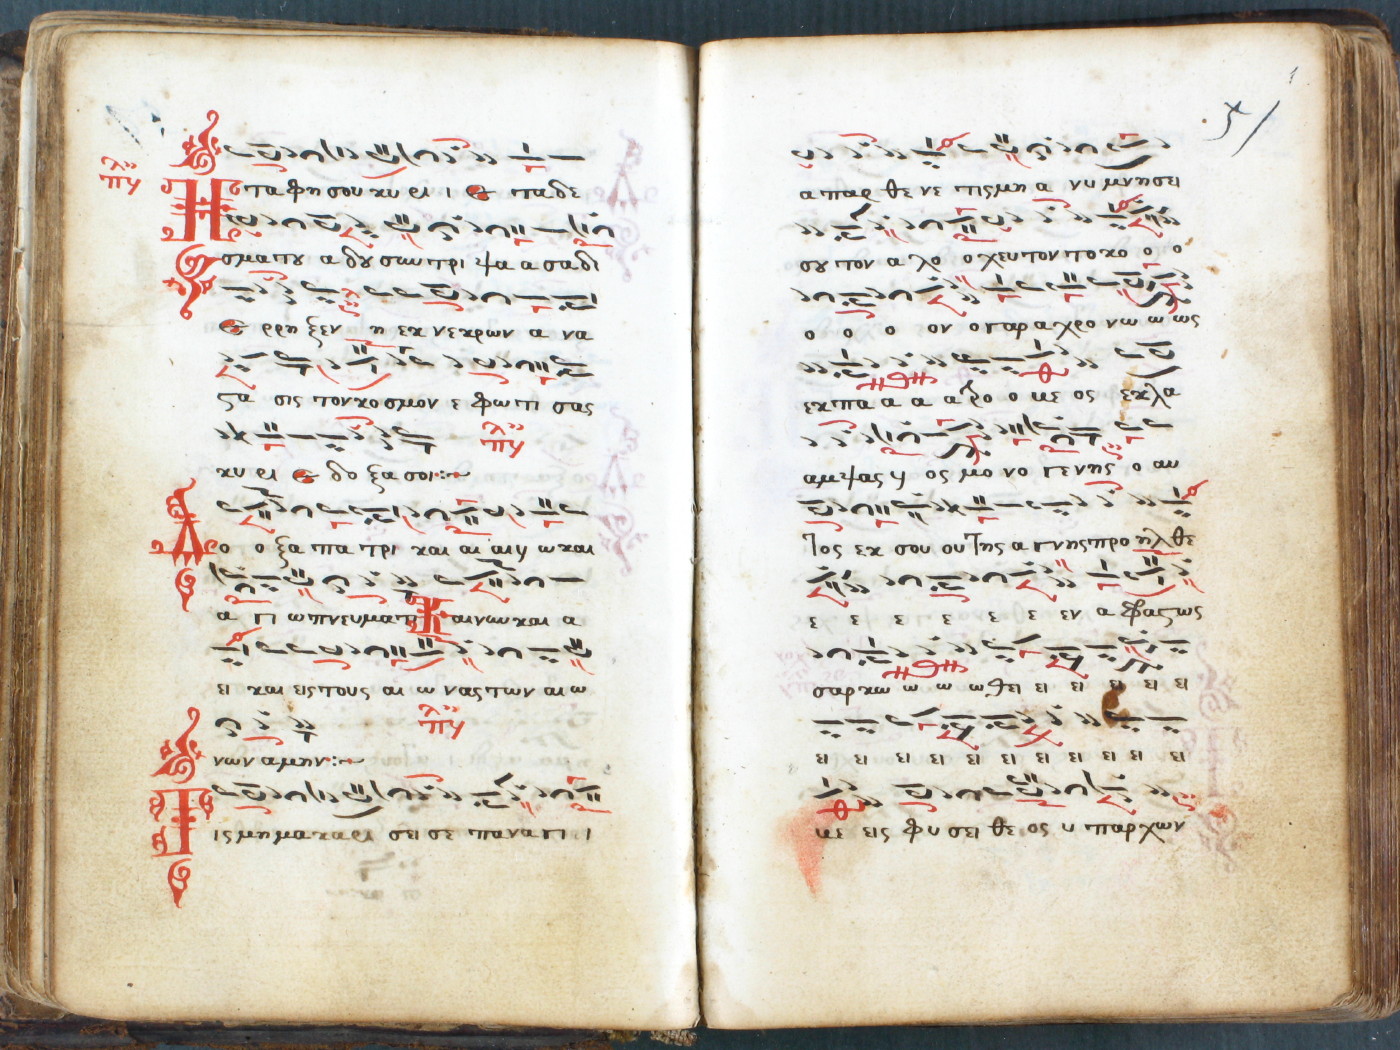 Η τα φη σου κυ ρι ι ε πα δε
σμα τυ α δου συν τρι ψα α σα δι
ε ρρη ξεν η εκ νεκρων α να
ϛα σις τον κοσμον ε φω τι σας
κυ ρι ε δο ξα σοι:~
Δο ο ξα πα τρι και αι αι υ ω και
α γι ω πνευματι Και νυν και α
ει και εις τους αι ω νας των αι ω
νων αμην:~
Τις μη μακαρι σει σε παναγι ι
51
α παρ θε νε τις μη α νυ μνη σει
σου τον α λο ο χευτον το κο ο ο
ο ο ο ον ο γαρ α χρο νω ω ως
εκ πα α α α ρο ο με ος εκ λα
αμψας υ ος μο νο γενης ο αυ
τος εκ σου ου της α γνης προ ηλθε
ε ε ε ε ε ε εν α φραϛως
σαρκω ω ω ω θει ει ει ει ει ει
ει ει ει ει ει ει ει ει ει ει
με εις φυ σει θε ος υ παρχων